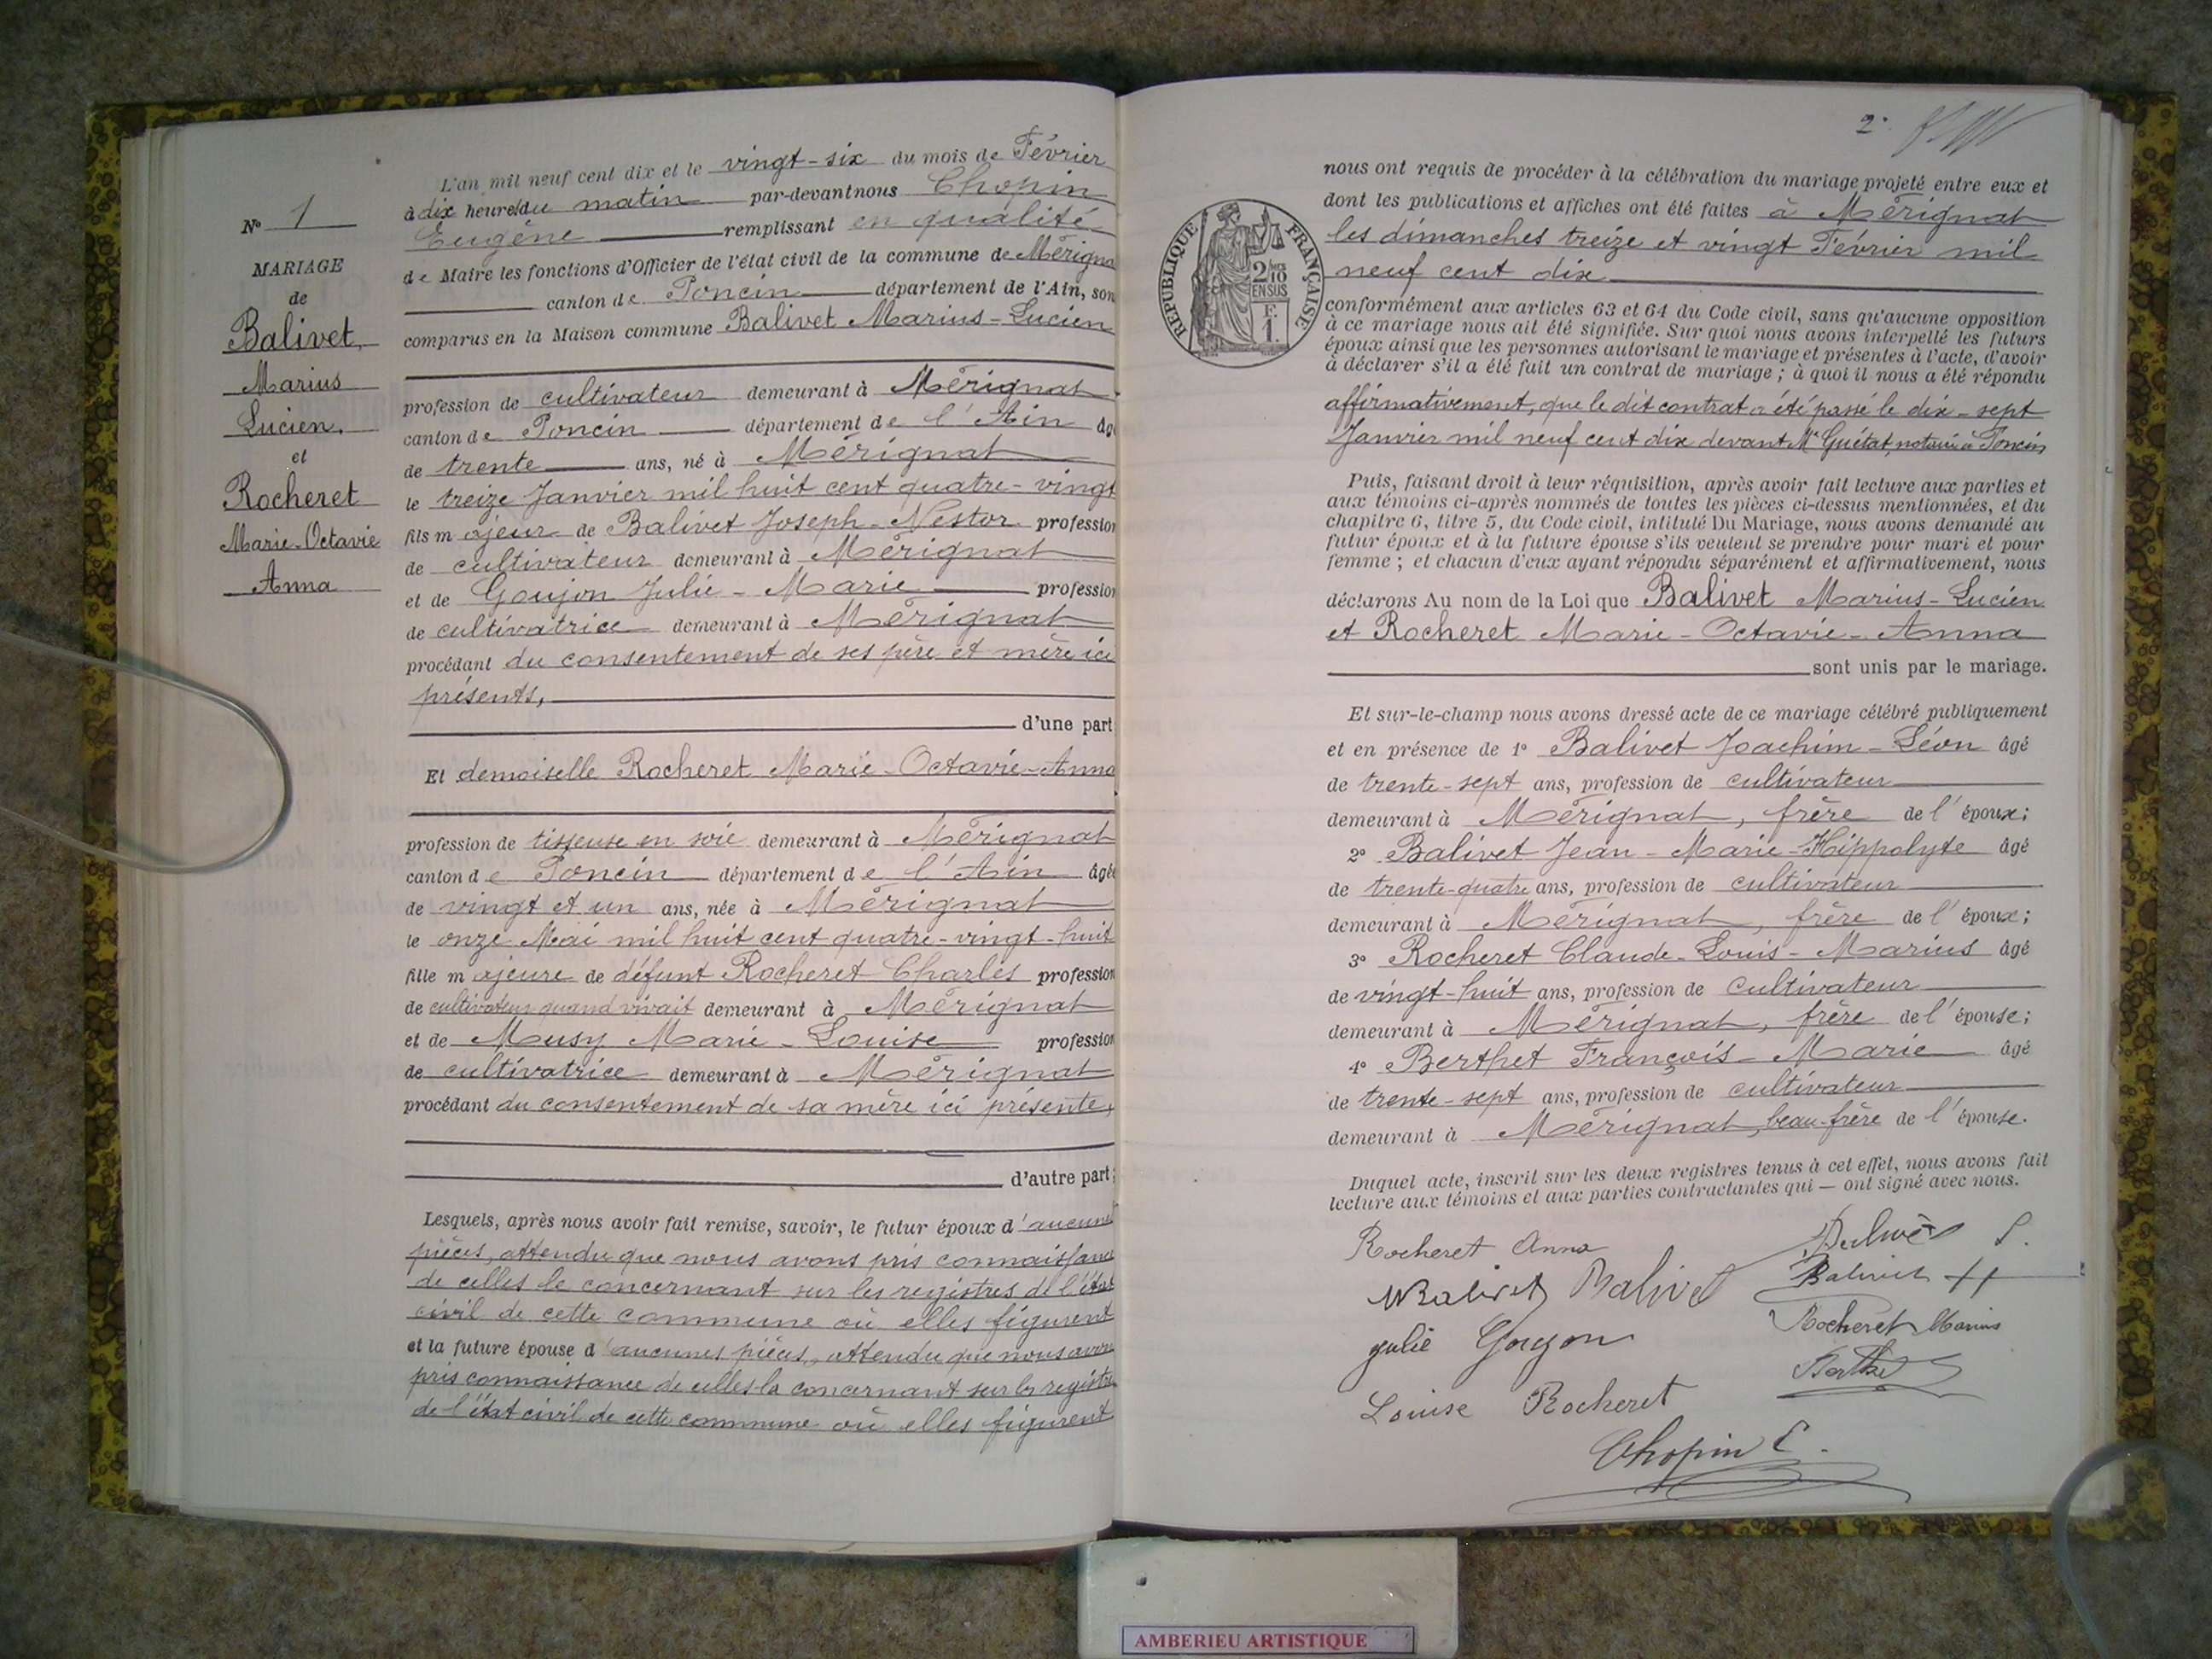 N° 1
MARIAGE
de
Balivet,
Marius
Lucien.
et
Rocheret
Marie-Octavie
Anna
L'an mil neuf cent dix et le vingt-six du mois de Février
à dix heures du matin par-devant nous Chopin
Eugène remplissant en qualité
de Maire les fonctions d'Officier de l'état civil de la commune de Mérigna
canton de Poncin département de l'Ain, son
comparus en la Maison commune Balivet Marius-Lucien
profession de cultivateur demeurant à Mérignat
canton de Poncin département de l'Ain âg
de trente ans, né à Mérignat
le treize Janvier mil huit cent quatre-vingt
fils majeur de Balivet Joseph-Nestor profession
de cultivateur demeurant à Mérignat
et de Goujon Julie-Marie profession
de cultivatrice demeurant à Mérignat
procédant du consentement de ses père et mère ici
présents,
d'une part
Et demoiselle Rocheret Marie-Octavie-Anna
profession de tisseuse en soie demeurant à Mérignat
canton de Poncin département de l'Ain âgée
de vingt et un ans, née à Mérignat
le onze Mai mil huit cent quatre-vingt-huit
fille majeure de défunt Rocheret Charles profession
de cultivateur quand vivait demeurant à Mérignat
et de Musy Marie-Louise profession
de cultivatrice demeurant à Mérignat
procédant du consentement de sa mère ici présente,
d'autre part;
Lesquels, après nous avoir fait remise, savoir, le futur époux d'aucunes
pièces, attendu que nous avons pris connaissance
de celles le concernant sur les registres de l'état
civil de cette commune où elles figurent
et la future épouse d'aucunes pièces, attendu que nous avons
pris connaissance de celles la concernant sur les registres
de l'état civil de cette commune où elles figurent
2°
nous ont requis de procéder à la célébration du mariage projeté entre eux et
dont les publications et affiches ont été faites à Mérignat
les dimanches treize et vingt Février mil
neuf cent dix
RÉPUBLIQUE FRANÇAISE
2/10 EN SUS
F.
1.
conformément aux articles 63 et 64 du Code civil, sans qu'aucune opposition
à ce mariage nous ait été signifiée. Sur quoi nous avons interpellé les futurs
époux ainsi que les personnes autorisant le mariage et présentes à l'acte, d'avoir
à déclarer s'il a été fait un contrat de mariage; à quoi il nous a été répondu
affirmativement, que le dit contrat a été passé le dix-sept
Janvier mil neuf cent dix devant Me Guétat, notaire à Poncin
Puis, faisant droit à leur réquisition, après avoir fait lecture aux parties et
aux témoins ci-après nommés de toutes les pièces ci-dessus mentionnées, et du
chapitre 6, titre 5, du Code civil, intitulé Du Mariage, nous avons demandé au
futur époux et à la future épouse s'ils veulent se prendre pour mari et pour
femme; et chacun d'eux ayant répondu séparément et affirmativement, nous
déclarons Au nom de la Loi que Balivet Marius-Lucien
et Rocheret Marie-Octavie-Anna
sont unis par le mariage.
Et sur-le-champ nous avons dressé acte de ce mariage célébré publiquement
et en présence de 1° Balivet Joachim-Léon âgé
de trente-sept ans, profession de cultivateur
demeurant à Mérignat, frère de l'époux;
2° Balivet Jean-Marie-Hippolyte âgé
de trente-quatre ans, profession de cultivateur
demeurant à Mérignat, frère de l'époux;
3° Rocheret Claude-Louis-Marius âgé
de vingt-huit ans, profession de cultivateur
demeurant à Mérignat, frère de l'épouse;
4° Berthet François-Marie âgé
de trente-sept ans, profession de cultivateur
demeurant à Mérignat, beau-frère de l'épouse.
Duquel acte, inscrit sur les deux registres tenus à cet effet, nous avons fait
lecture aux témoins et aux parties contractantes qui — ont signé avec nous.
Rocheret Anna
Balivet Balivet
Balivet
julie Goujon
Rocheret Marius
Berthet
Louise Rocheret
Chopin E.
AMBERIEU ARTISTIQUE